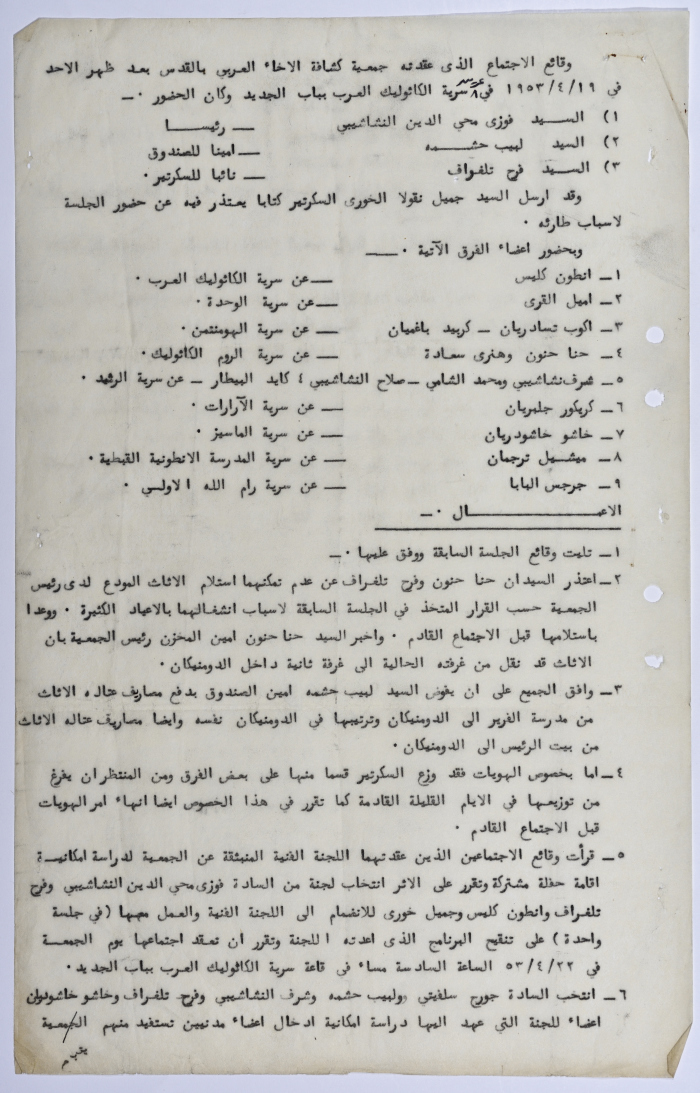 وقائع الاجتماع الذى عقدته جمعية كشافة الاخاء العربي بالقدس بعد ظهر الاحد
في ١٩٥٣/٤/١٩ في سرية الكاثوليك العرب بباب الجديد وكان الحضور ٠ـ
١) الســـيد فوزى محي الدين النشاشيبي ــ رئيســا
٢) السيد لبيب حشــــمه ــ امينا للصندوق
٣) الســيد فرح تلفراف ــ نائبا للسكرتير٠
وقد ارسل السيد جميل نقولا الخورى السكرتير كتابا يعتذر فيه عن حضور الجلسة
لاسباب طارئه ٠
وبحضور اعضاء الفرق الآتية ٠ــ
١ــ انطون كليس ــ عن سرية الكاثوليك العرب ٠
٢ــ اميل القرى ــ عن سرية الوحدة ٠
٣ــ اكوب تسادريان ــ كربيد باغميان ــ عن سرية الهومنتمن٠
٤ــ حنا حنون وهنرى سعادة ــ عن سرية الروم الكاثوليك٠
٥ــ شرف نشاشيبي ومحمد الشامي ــ صلاح النشاشيبي ؛ كايد البيطار ــ عن سرية الرشيد ٠
٦ــ كريكور جلبريان ــ عن سرية الآرارات ٠
٧ــ خاشو خاشودريان ــ عن سرية الماسيز ٠
٨ــ ميشــيل ترجمان ــ عن سرية المدرسة الانطونية القبطية ٠
٩ــ جرجس البابا ــ عن سرية رام الله الاولــي ٠
الاعمــــــــــــال ٠ــ
١ــ تليت وقائع الجلسة السابقة ووفق عليها ٠ــ
٢ــ اعتذر السيدان حنا حنون وفرح تلفراف عن عدم تمكنهما استلام الاثاث المودع لدى رئيس
الجمعية حسب القرار المتخذ في الجلسة السابقة لاسباب انشغالهما بالاعياد الكثيرة ٠ ووعدا
باستلامها قبل الاجتماع القادم ٠ واخبر السيد حنا حنون امين المخزن رئيس الجمعية بان
الاثاث قد نقل من غرفته الحالية الى غرفة ثانية داخل الدومنيكان٠
٣ــ وافق الجميع على ان يفوض السيد لبيب حشمه امين الصندوق بدفع مصاريف عتاله الاثاث
من مدرسة الفرير الى الدومنيكان وترتيبها في الدومنيكان نفسه وايضا مصاريف عتاله الاثاث
من بيت الرئيس الى الدومنيكان ٠
٤ــ اما بخصوص الهويات فقد وزع السكرتير قسما منها على بعض الفرق ومن المنتظر ان يفرغ
من توزيعها في الايام القليلة القادمة كما تقرر في هذا الخصوص ايضا انهاء امر الهويات
قبل الاجتماع القادم ٠
٥ــ قرأت وقائع الاجتماعين الذين عقدتهما اللجنة الفنية المنبثقة عن الجمعية لدراسة امكانيــة
اقامة حفلة مشتركة وتقرر على الاثر انتخاب لجنة من السادة فوزى محي الدين النشاشيبي وفرح
تلفراف وانطون كليس وجميل خورى للانضمام الى اللجنة الفنية والعمل معها (في جلسة
واحدة) على تنقيح البرنامج الذى اعدته اللجنة وتقرر ان تعقد اجتماعها يوم الجمعــة
في ٥٣/٤/٢٢ الساعة السادسة مساء في قاعة سرية الكاثوليك العرب بباب الجديد٠
٦ــ انتخب السادة جورج سلفيتي ولبيب حشمه وشرف النشاشيبي وفرح تلفراف وخاشو خاشودريان
اعضاء للجنة التي عهد اليها دراسة امكانية ادخال اعضاء مدنيين تستفيد منهم الجمعية